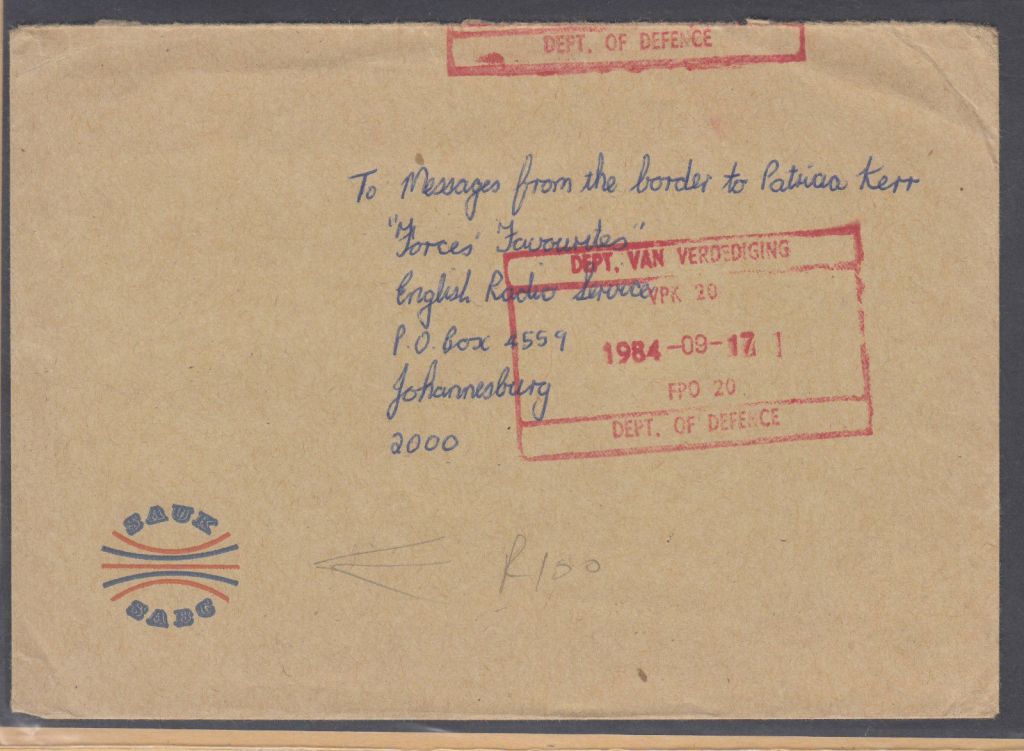 DEPT. OF DEFENCE
To Messages from the border to Patricia Kerr
"Forces' Favourites"
English Radio Service
P.O. Box 4559
Johannesburg
2000
DEPT. VAN VERDEDIGING
VPK 20
1984-09-17
FPO 20
DEPT. OF DEFENCE
SAUK
SABC
R100